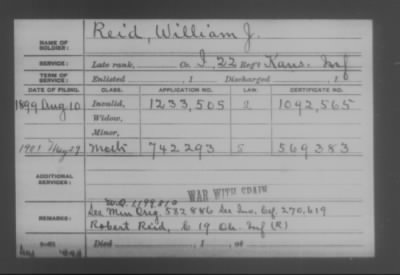 NAME OF SOLDIER: Reid, William J.
SERVICE: Late rank, Co. I, 22 Reg't Kans. Inf
TERM OF SERVICE: Enlisted , 1 Discharged , 1
DATE OF FILING. CLASS. APPLICATION NO. LAW. CERTIFICATE NO.
1899 Aug 10 Invalid, 1233,505 1092,565
Widow,
Minor,
1901 May 27 742293 S 569383
ADDITIONAL SERVICES:
WAR WITH SPAIN
W.O. 1199810
REMARKS: See Min Orig. 582886 See Inv. Ctf. 270,619
Robert Reid, C 19 Oh. Inf (R)
Died , 1 , at